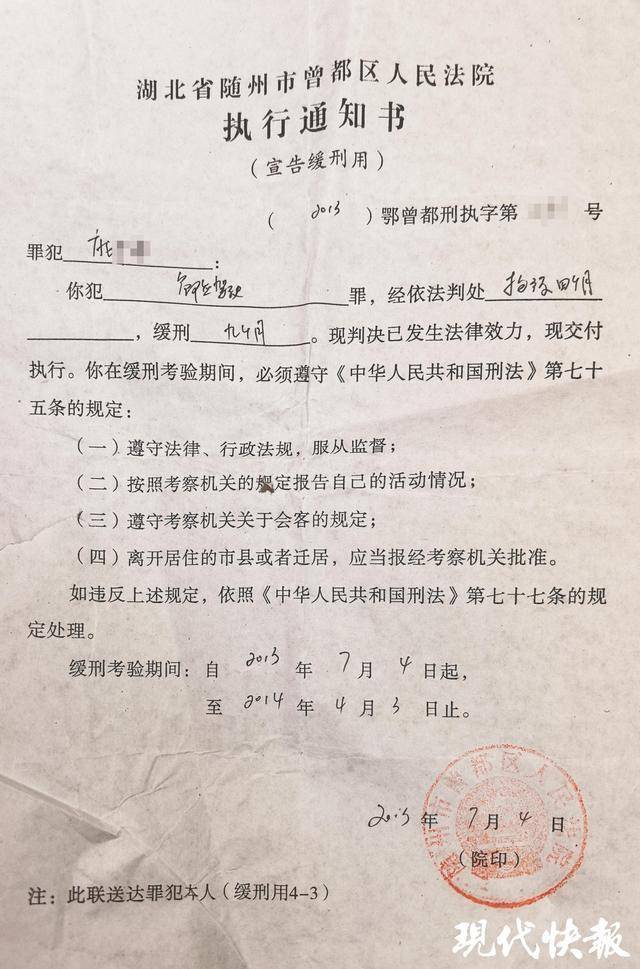 湖北省随州市曾都区人民法院
执行通知书
（宣告缓刑用）
（ 2013 ）鄂曾都刑执字第 号
罪犯 ：
你犯 罪，经依法判处 拘役四个月
，缓刑 九个月 。现判决已发生法律效力，现交付
执行。你在缓刑考验期间，必须遵守《中华人民共和国刑法》第七十
五条的规定：
（一）遵守法律、行政法规，服从监督；
（二）按照考察机关的规定报告自己的活动情况；
（三）遵守考察机关关于会客的规定；
（四）离开居住的市县或者迁居，应当报经考察机关批准。
如违反上述规定，依照《中华人民共和国刑法》第七十七条的规
定处理。
缓刑考验期间：自 2013 年 7 月 4 日起，
至 2014 年 4 月 3 日止。
2013 年 7 月 4 日
（院印）
随州市曾都区人民法院
注：此联送达罪犯本人（缓刑用4-3）
现代快報